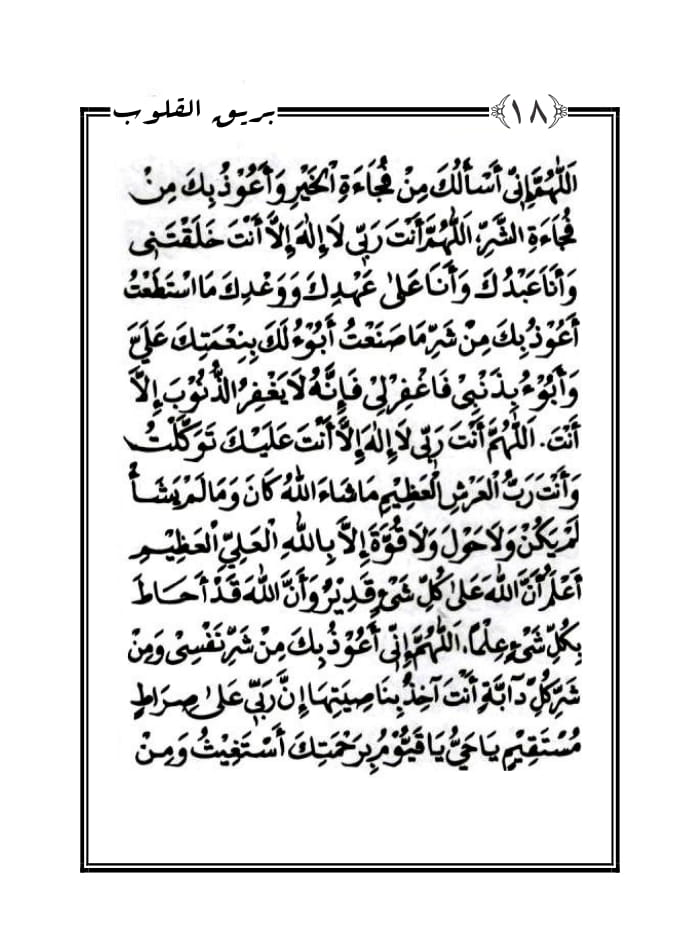 بريق القلوب ﴿١٨﴾
اَللّٰهُمَّ إِنِّيْ أَسْأَلُكَ مِنْ فُجَاءَةِ الْخَيْرِ وَأَعُوْذُ بِكَ مِنْ
فُجَاءَةِ الشَّرِّ، اَللّٰهُمَّ أَنْتَ رَبِّيْ لَا إِلٰهَ إِلَّا أَنْتَ خَلَقْتَنِيْ
وَأَنَا عَبْدُكَ وَأَنَا عَلىٰ عَهْدِكَ وَوَعْدِكَ مَا اسْتَطَعْتُ
أَعُوْذُ بِكَ مِنْ شَرِّ مَا صَنَعْتُ أَبُوْءُ لَكَ بِنِعْمَتِكَ عَلَيَّ
وَأَبُوْءُ بِذَنْبِيْ فَاغْفِرْ لِيْ فَإِنَّهُ لَا يَغْفِرُ الذُّنُوْبَ إِلَّا
أَنْتَ. اَللّٰهُمَّ أَنْتَ رَبِّيْ لَا إِلٰهَ إِلَّا أَنْتَ عَلَيْكَ تَوَكَّلْتُ
وَأَنْتَ رَبُّ الْعَرْشِ الْعَظِيْمِ مَا شَاءَ اللهُ كَانَ وَمَا لَمْ يَشَأْ
لَمْ يَكُنْ وَلَا حَوْلَ وَلَا قُوَّةَ إِلَّا بِاللهِ الْعَلِيِّ الْعَظِيْمِ
أَعْلَمُ أَنَّ اللهَ عَلىٰ كُلِّ شَيْءٍ قَدِيْرٌ وَأَنَّ اللهَ قَدْ أَحَاطَ
بِكُلِّ شَيْءٍ عِلْمًا. اَللّٰهُمَّ إِنِّيْ أَعُوْذُ بِكَ مِنْ شَرِّ نَفْسِيْ وَمِنْ
شَرِّ كُلِّ دَآبَّةٍ أَنْتَ آخِذٌ بِنَاصِيَتِهَا إِنَّ رَبِّيْ عَلىٰ صِرَاطٍ
مُسْتَقِيْمٍ يَا حَيُّ يَا قَيُّوْمُ بِرَحْمَتِكَ أَسْتَغِيْثُ وَمِنْ